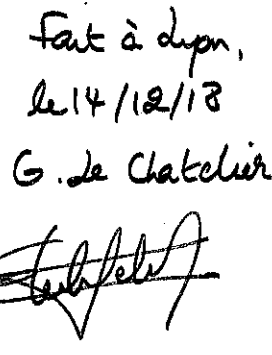 Fait à Lyon,
le 14/12/18
G. de Chatelier